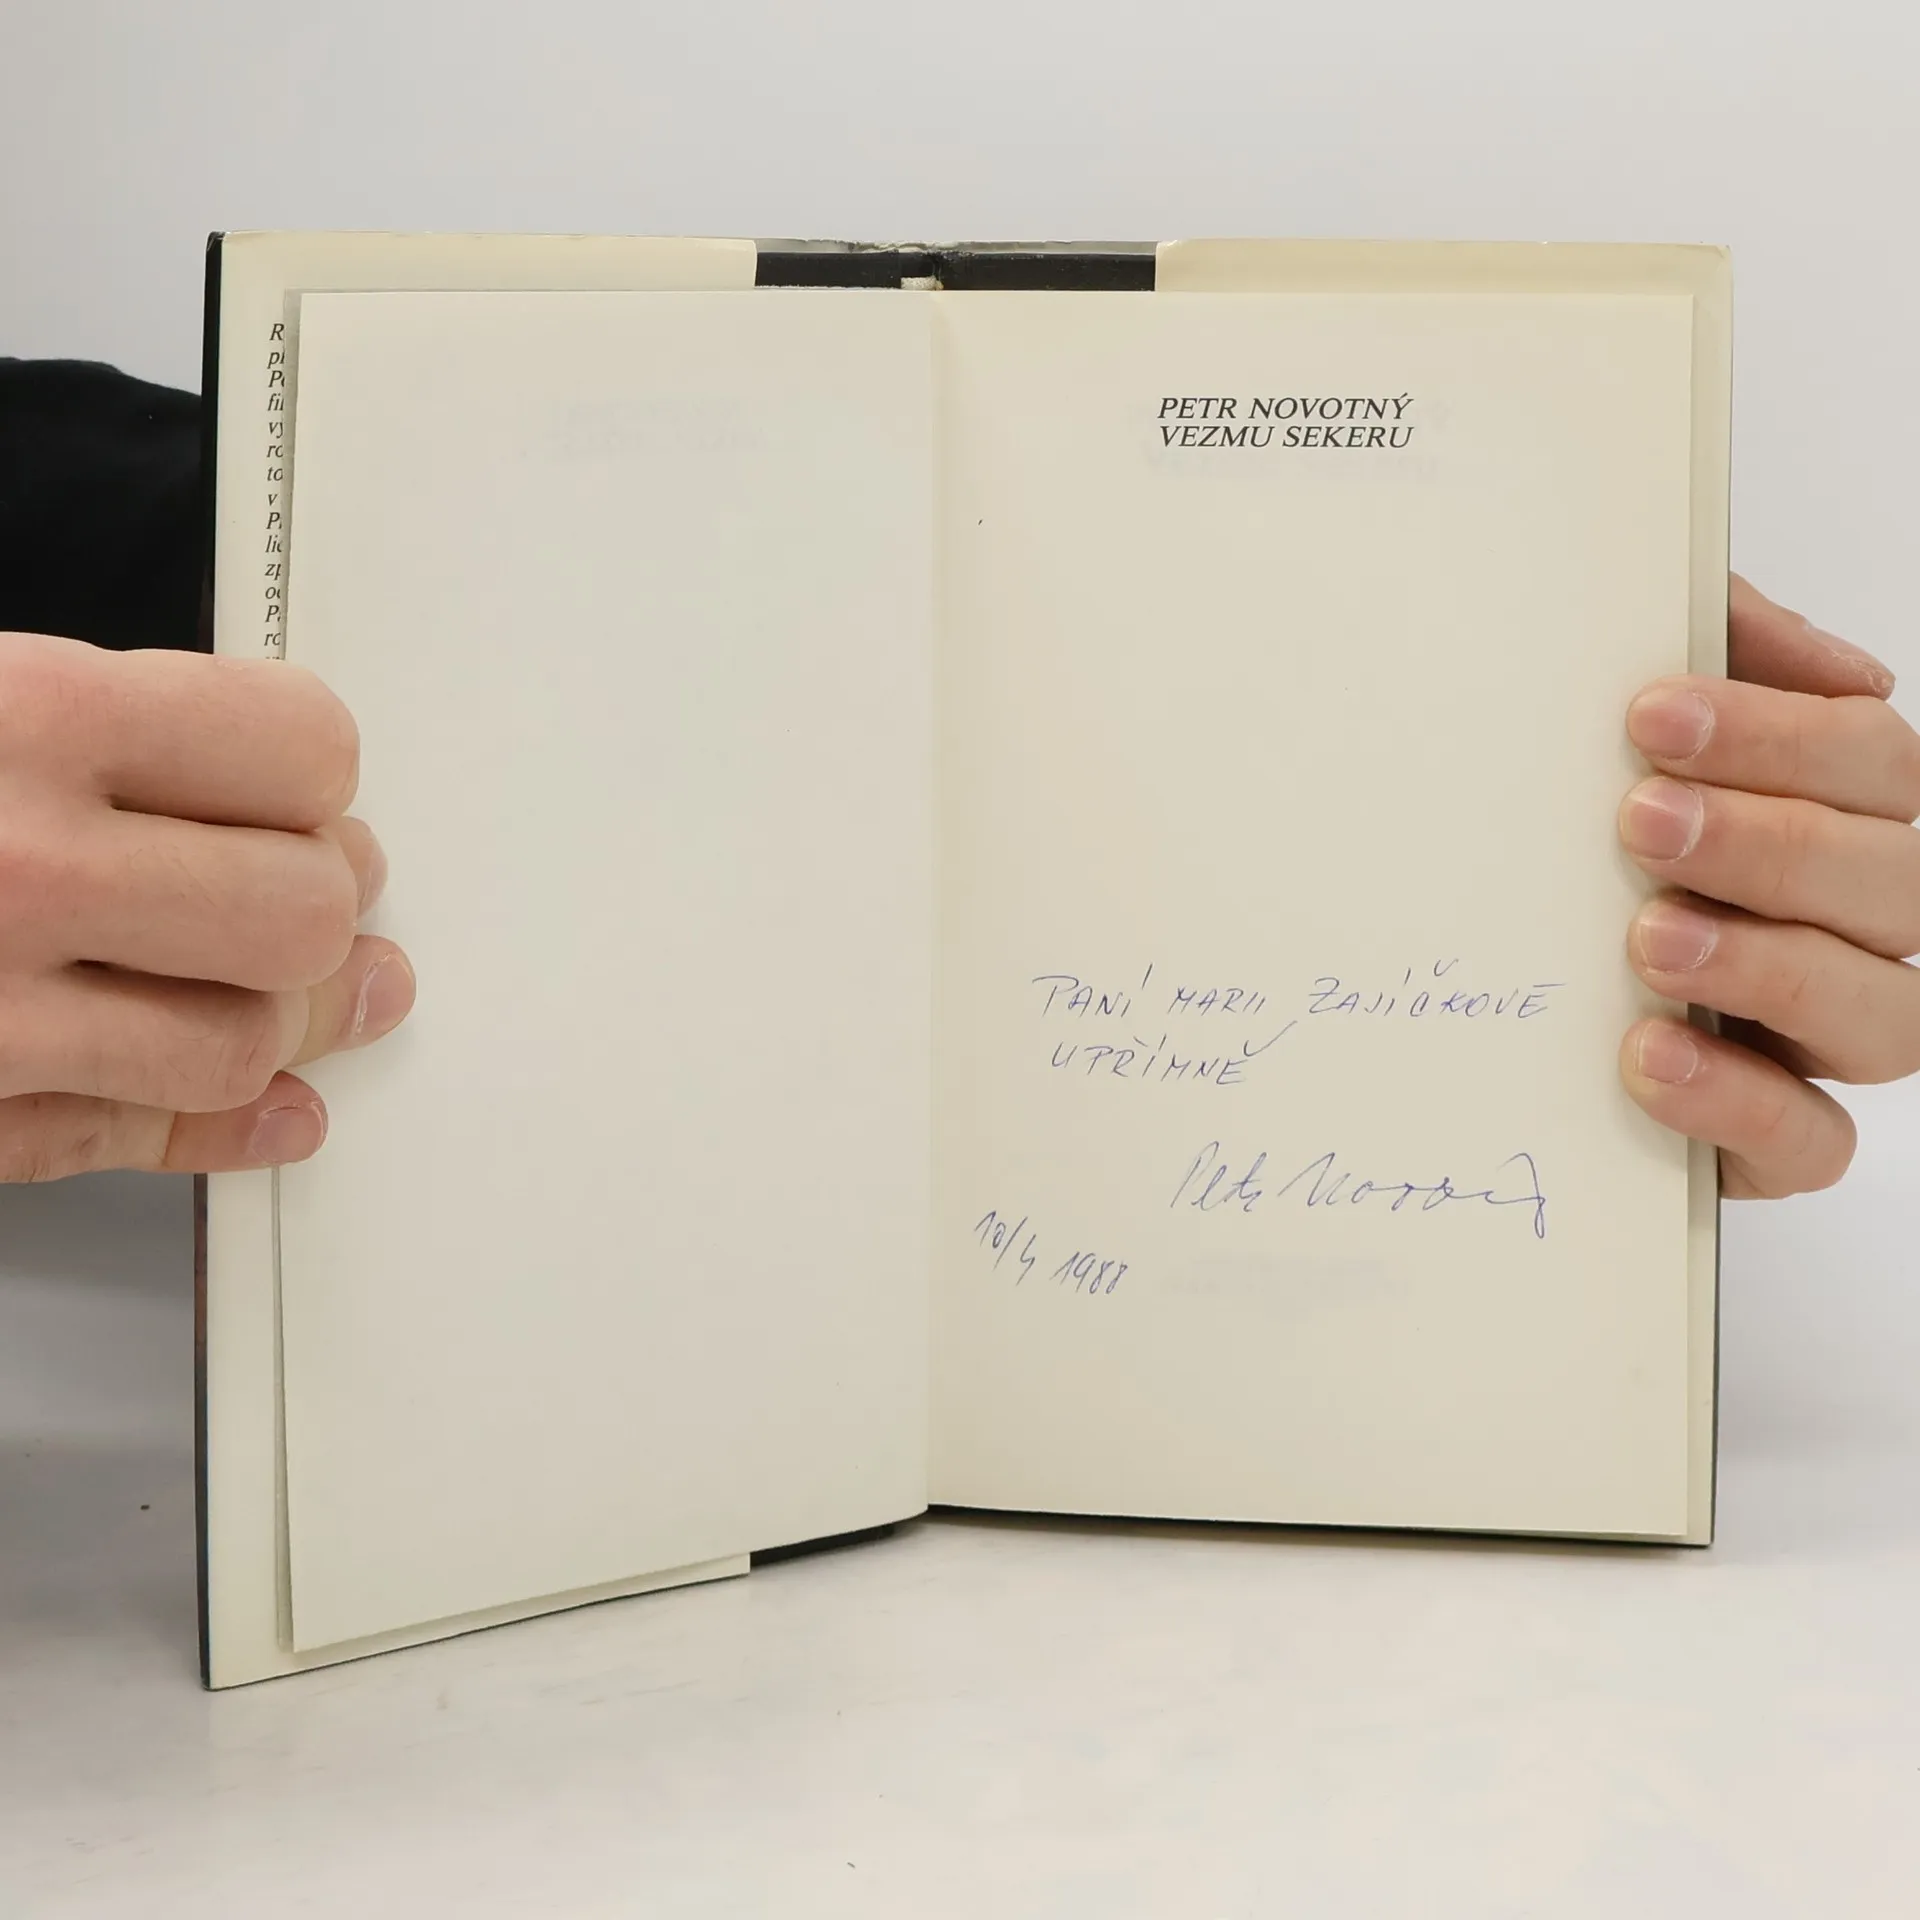 PETR NOVOTNÝ
VEZMU SEKERU
PANÍ MARII ZAJÍČKOVÉ
UPŘÍMNĚ
Petr Novotný
10/4 1988